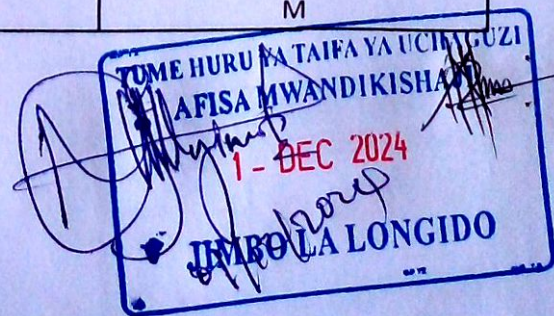 M
TUME HURU YA TAIFA YA UCHAGUZI
AFISA MWANDIKISHAJI
1 - DEC 2024
JIMBO LA LONGIDO